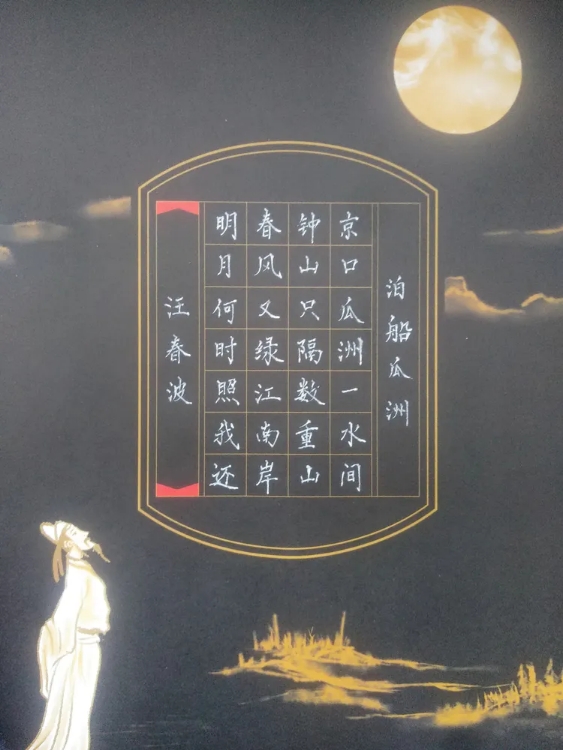 泊船瓜洲
京口瓜洲一水间
钟山只隔数重山
春风又绿江南岸
明月何时照我还
汪春波